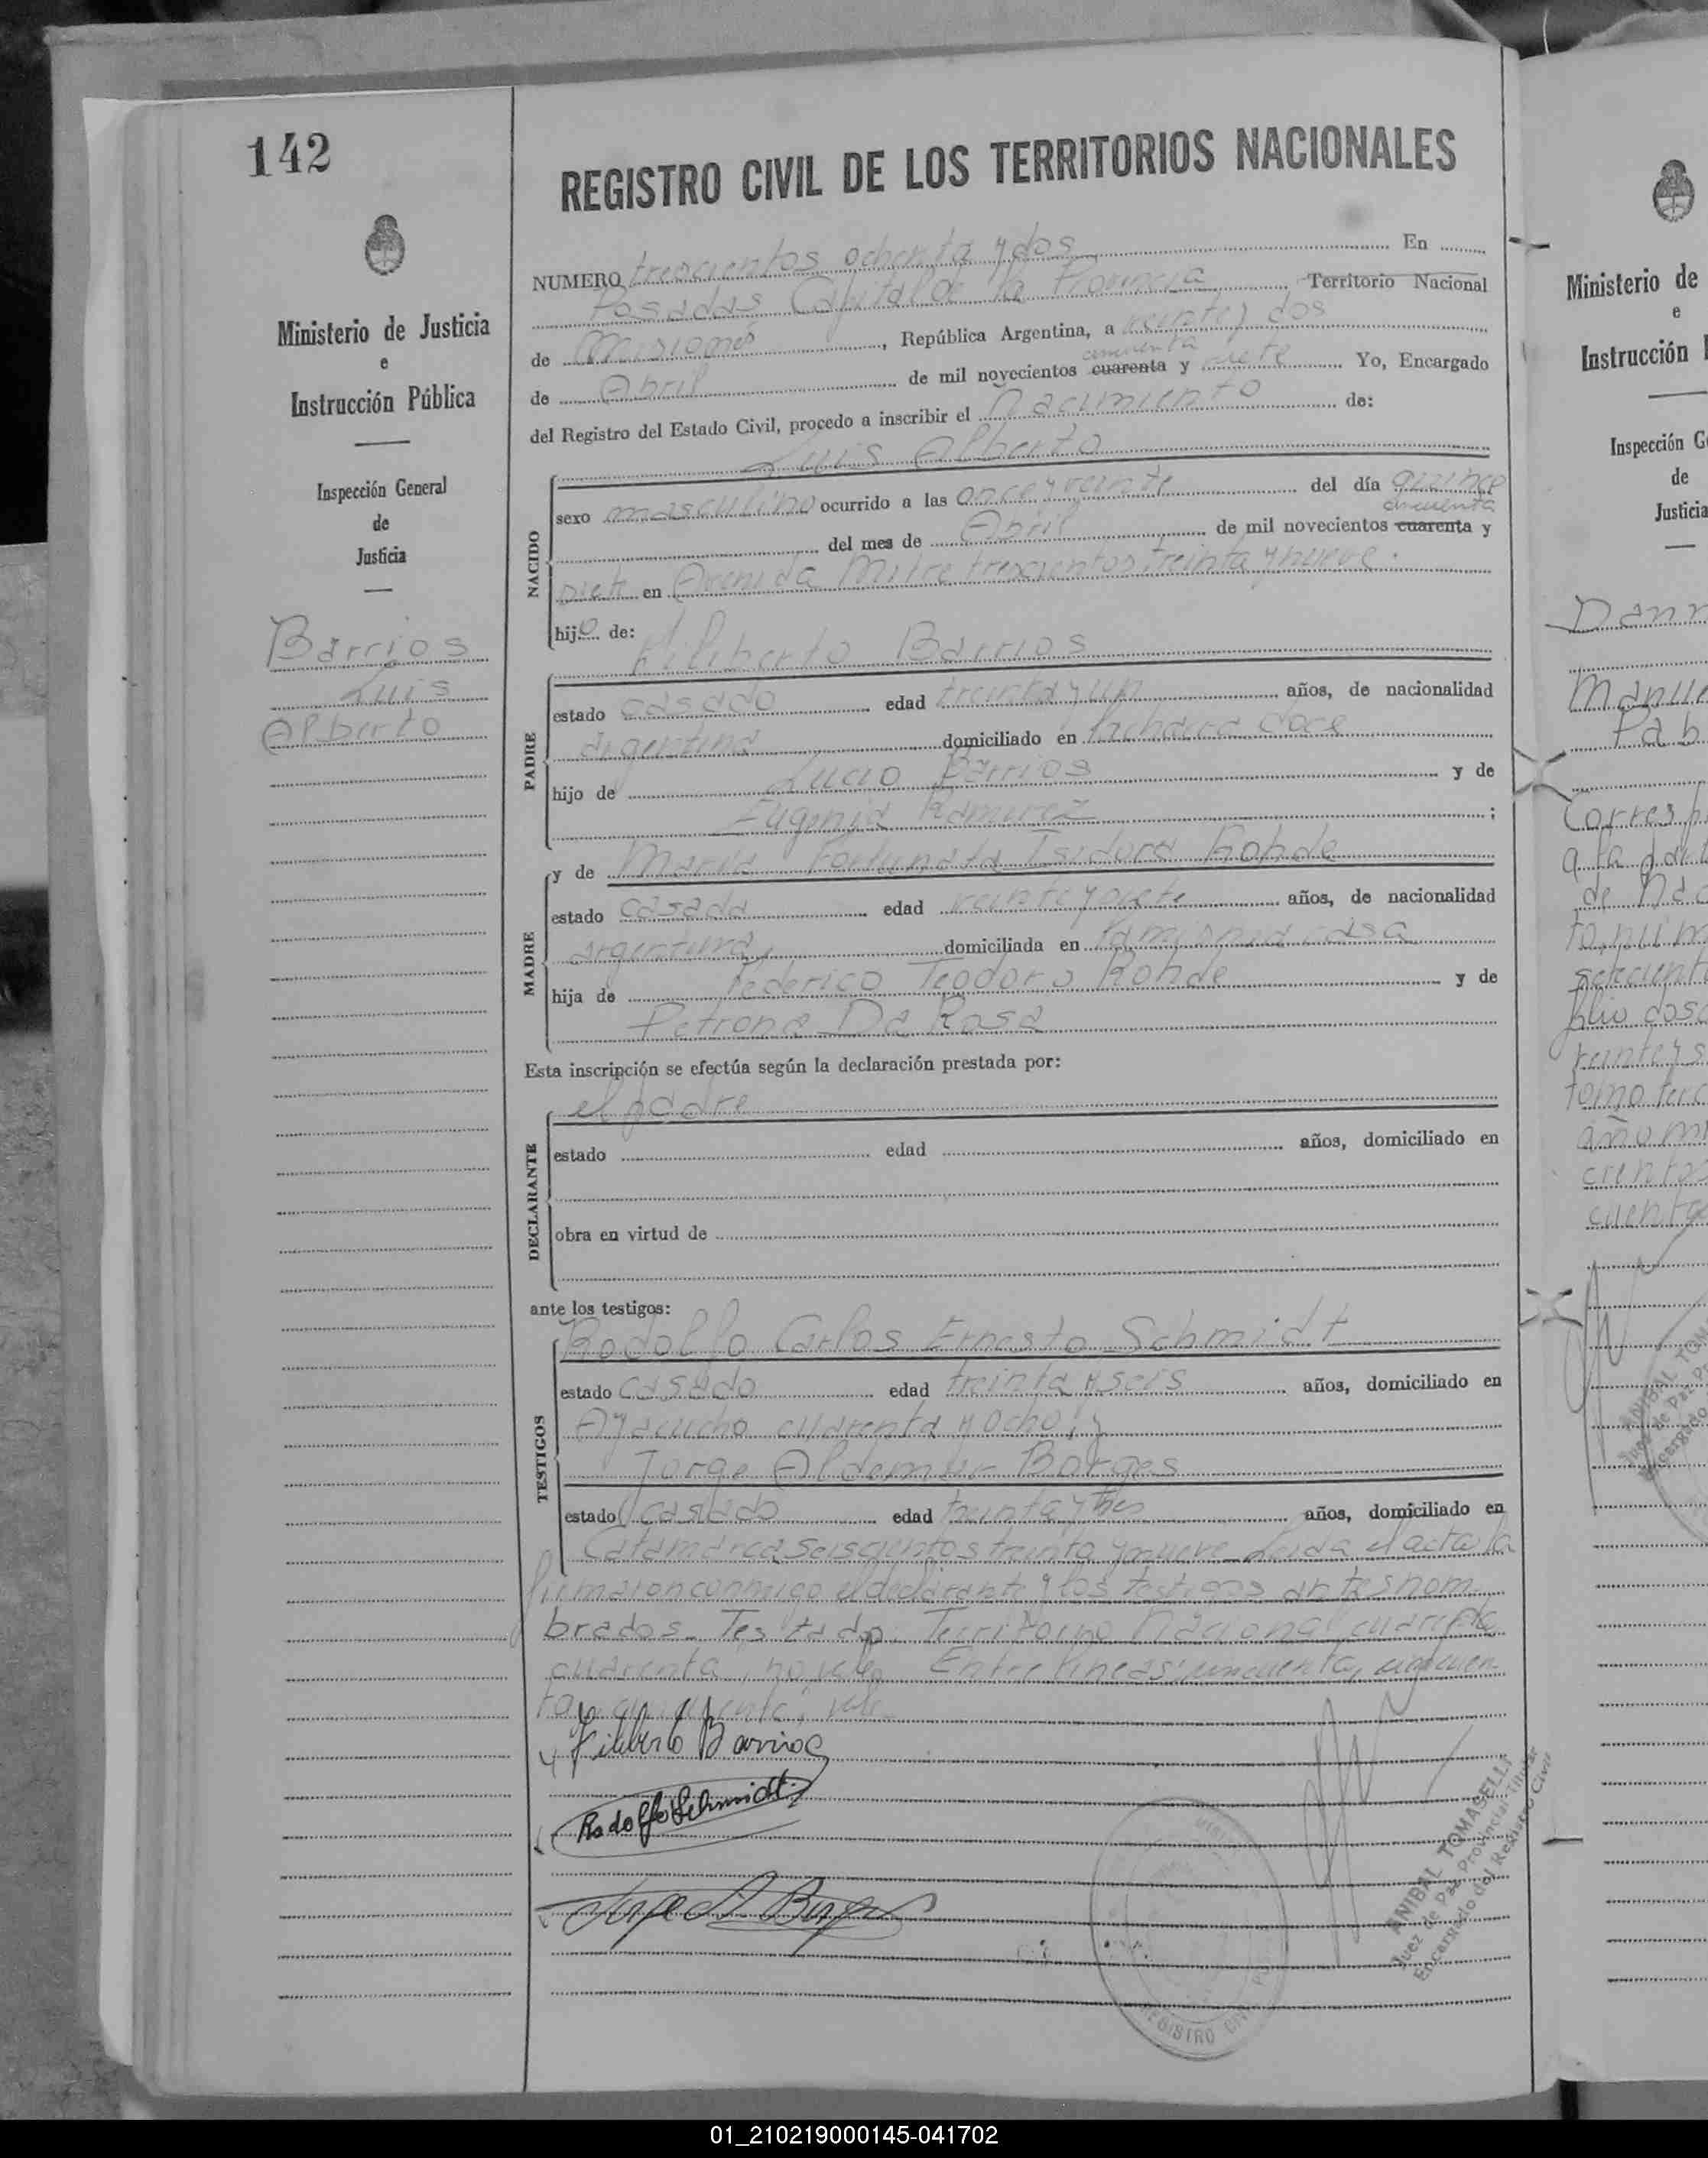 142
REGISTRO CIVIL DE LOS TERRITORIOS NACIONALES
Ministerio de Justicia
e
Instrucción Pública
Inspección General
de
Justicia
Barrios
Luis
Alberto
NUMERO trescientos ochenta y dos En
Posadas Capital de la Provincia Territorio Nacional
de Misiones, República Argentina, a veinte y dos
cincuenta
de Abril de mil novecientos cuarenta y siete Yo, Encargado
del Registro del Estado Civil, procedo a inscribir el nacimiento de:
Luis Alberto
NACIDO
sexo masculino ocurrido a las once y veinte del día quince
cincuenta
del mes de Abril de mil novecientos cuarenta y
siete en Avenida Mitre trescientos treinta y nueve.
hijo de:
Filiberto Barrios
PADRE
estado casado edad treinta y un años, de nacionalidad
argentina domiciliado en doce
hijo de Lucio Barrios y de
Eugenia Ramirez ;
MADRE
y de Maria Fortunata Isidora Rohde
estado casada edad veinte y siete años, de nacionalidad
argentina, domiciliada en la misma casa
hija de Federico Teodoro Rohde y de
Petrona Da Rosa
Esta inscripción se efectúa según la declaración prestada por:
DECLARANTE
el padre
estado edad años, domiciliado en
obra en virtud de
ante los testigos:
TESTIGOS
Rodolfo Carlos Ernesto Schmidt
estado casado edad treinta y seis años, domiciliado en
Ayacucho cuarenta y ocho, y
Jorge Aldemur Borges
estado casado edad treinta y tres años, domiciliado en
Catamarca seiscientos treinta y nueve Leida el acta la
firmaron conmigo el declarante y los testigos antes nom
brados. Testado: Territorio Nacional cuarenta
cuarenta, no vale. Entre lineas: cincuenta, cincuen
ta, vale
Filiberto Barrios
Rodolfo Schmidt
Jorge A Borges
ANIBAL TOMASELLI
Juez de Paz Provincial Titular
Encargado del Registro Civil
REGISTRO CIVIL
Ministerio de
e
Instrucción
Inspección G
de
Justicia
Dann
Manue
Pab
Corresp
a la
de Nac
to, núm
setecient
folio dosc
veinte y s
tomo terc
año mi
cientos
cuenta
01_210219000145-041702